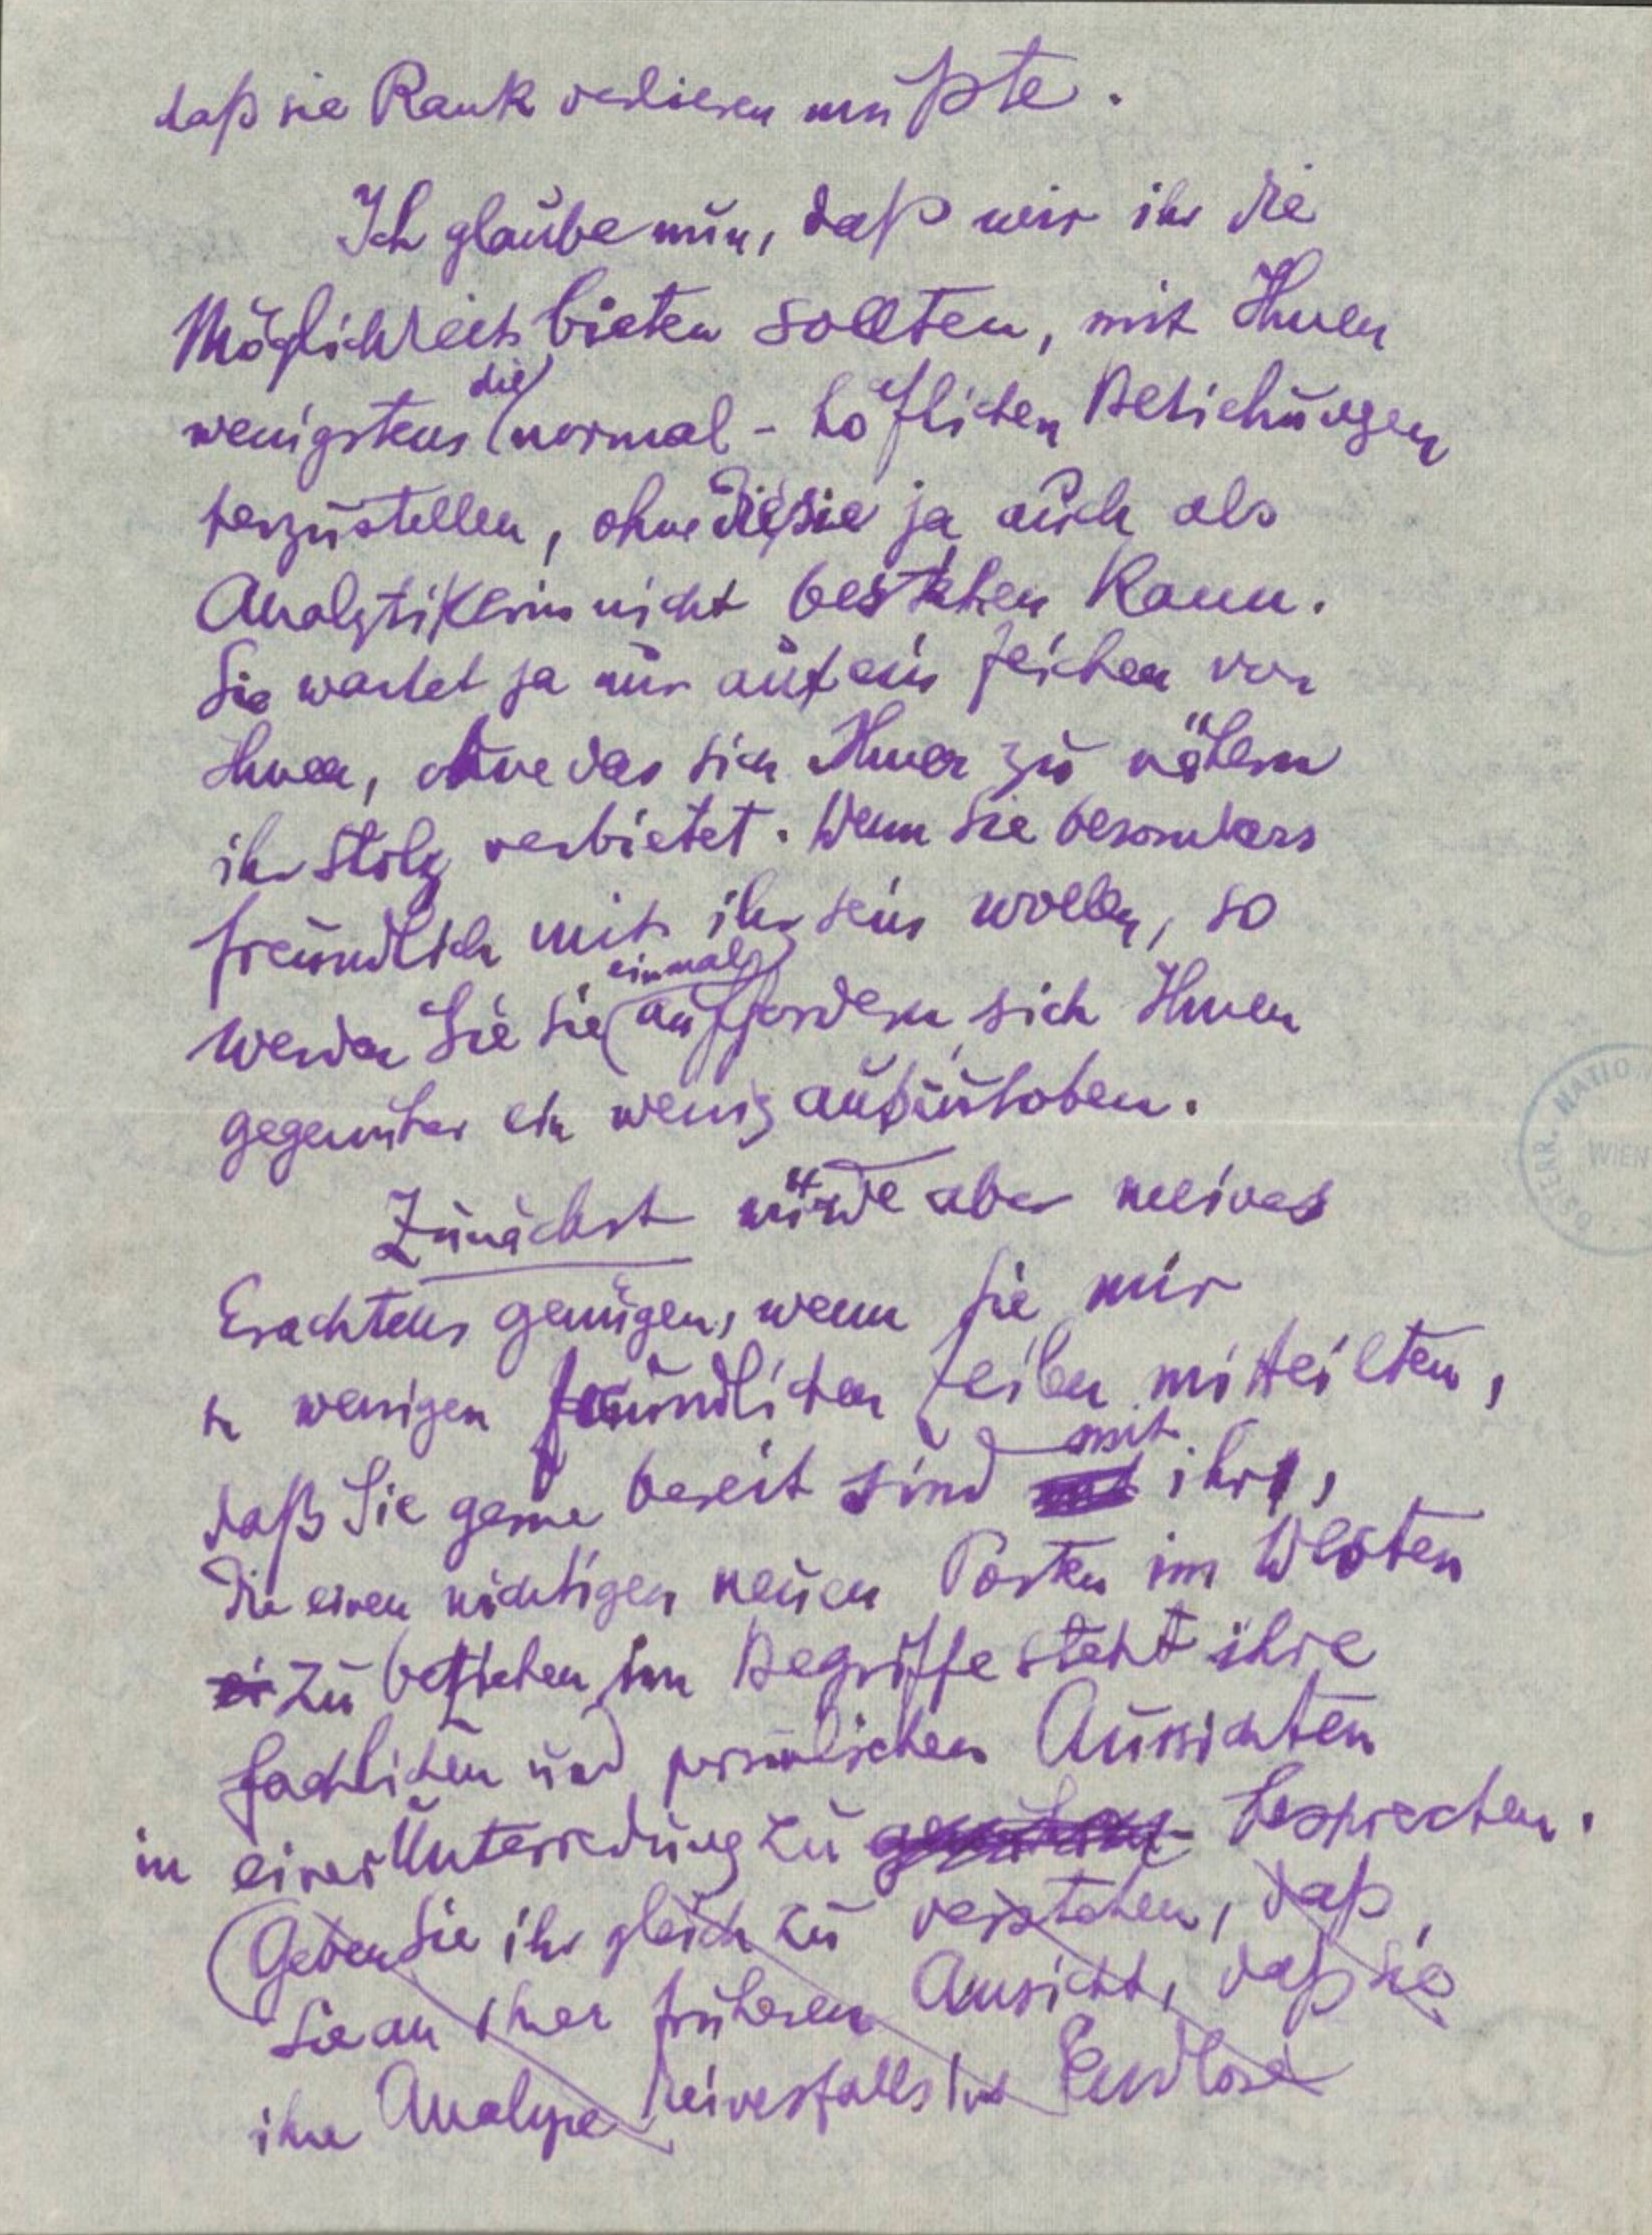 daß sie Rank verlieren mußte.
Ich glaube nun, daß wir ihr die
Möglichkeit bieten sollten, mit Ihnen
wenigstens die normal-höflichen Beziehungen
herzustellen, ohne die sie ja auch als
Analytikerin nicht bestehen kann.
Sie wartet ja nur auf ein Zeichen von
Ihnen, ohne das sich Ihnen zu nähern
ihr Stolz verbietet. Wenn Sie besonders
freundlich mit ihr sein wollen, so
werden Sie sie einmal auffordern, sich Ihnen
gegenüber ein wenig
Zunächst würde aber meines
Erachtens genügen, wenn Sie mir
in wenigen freundlichen Zeilen mitteilten,
daß Sie gerne bereit sind mit ihr,
die einen wichtigen neuen Posten im Westen
zu beziehen im Begriffe steht ihre
fachlichen und persönlichen Aussichten
in einer Unterredung zu besprechen.
(Geben Sie ihr gleich zu verstehen, daß
Sie an Ihrer früheren Ansicht, daß sie
ihre Analyse keinesfalls ins Endlose
ÖSTERR. NATIO
WIEN